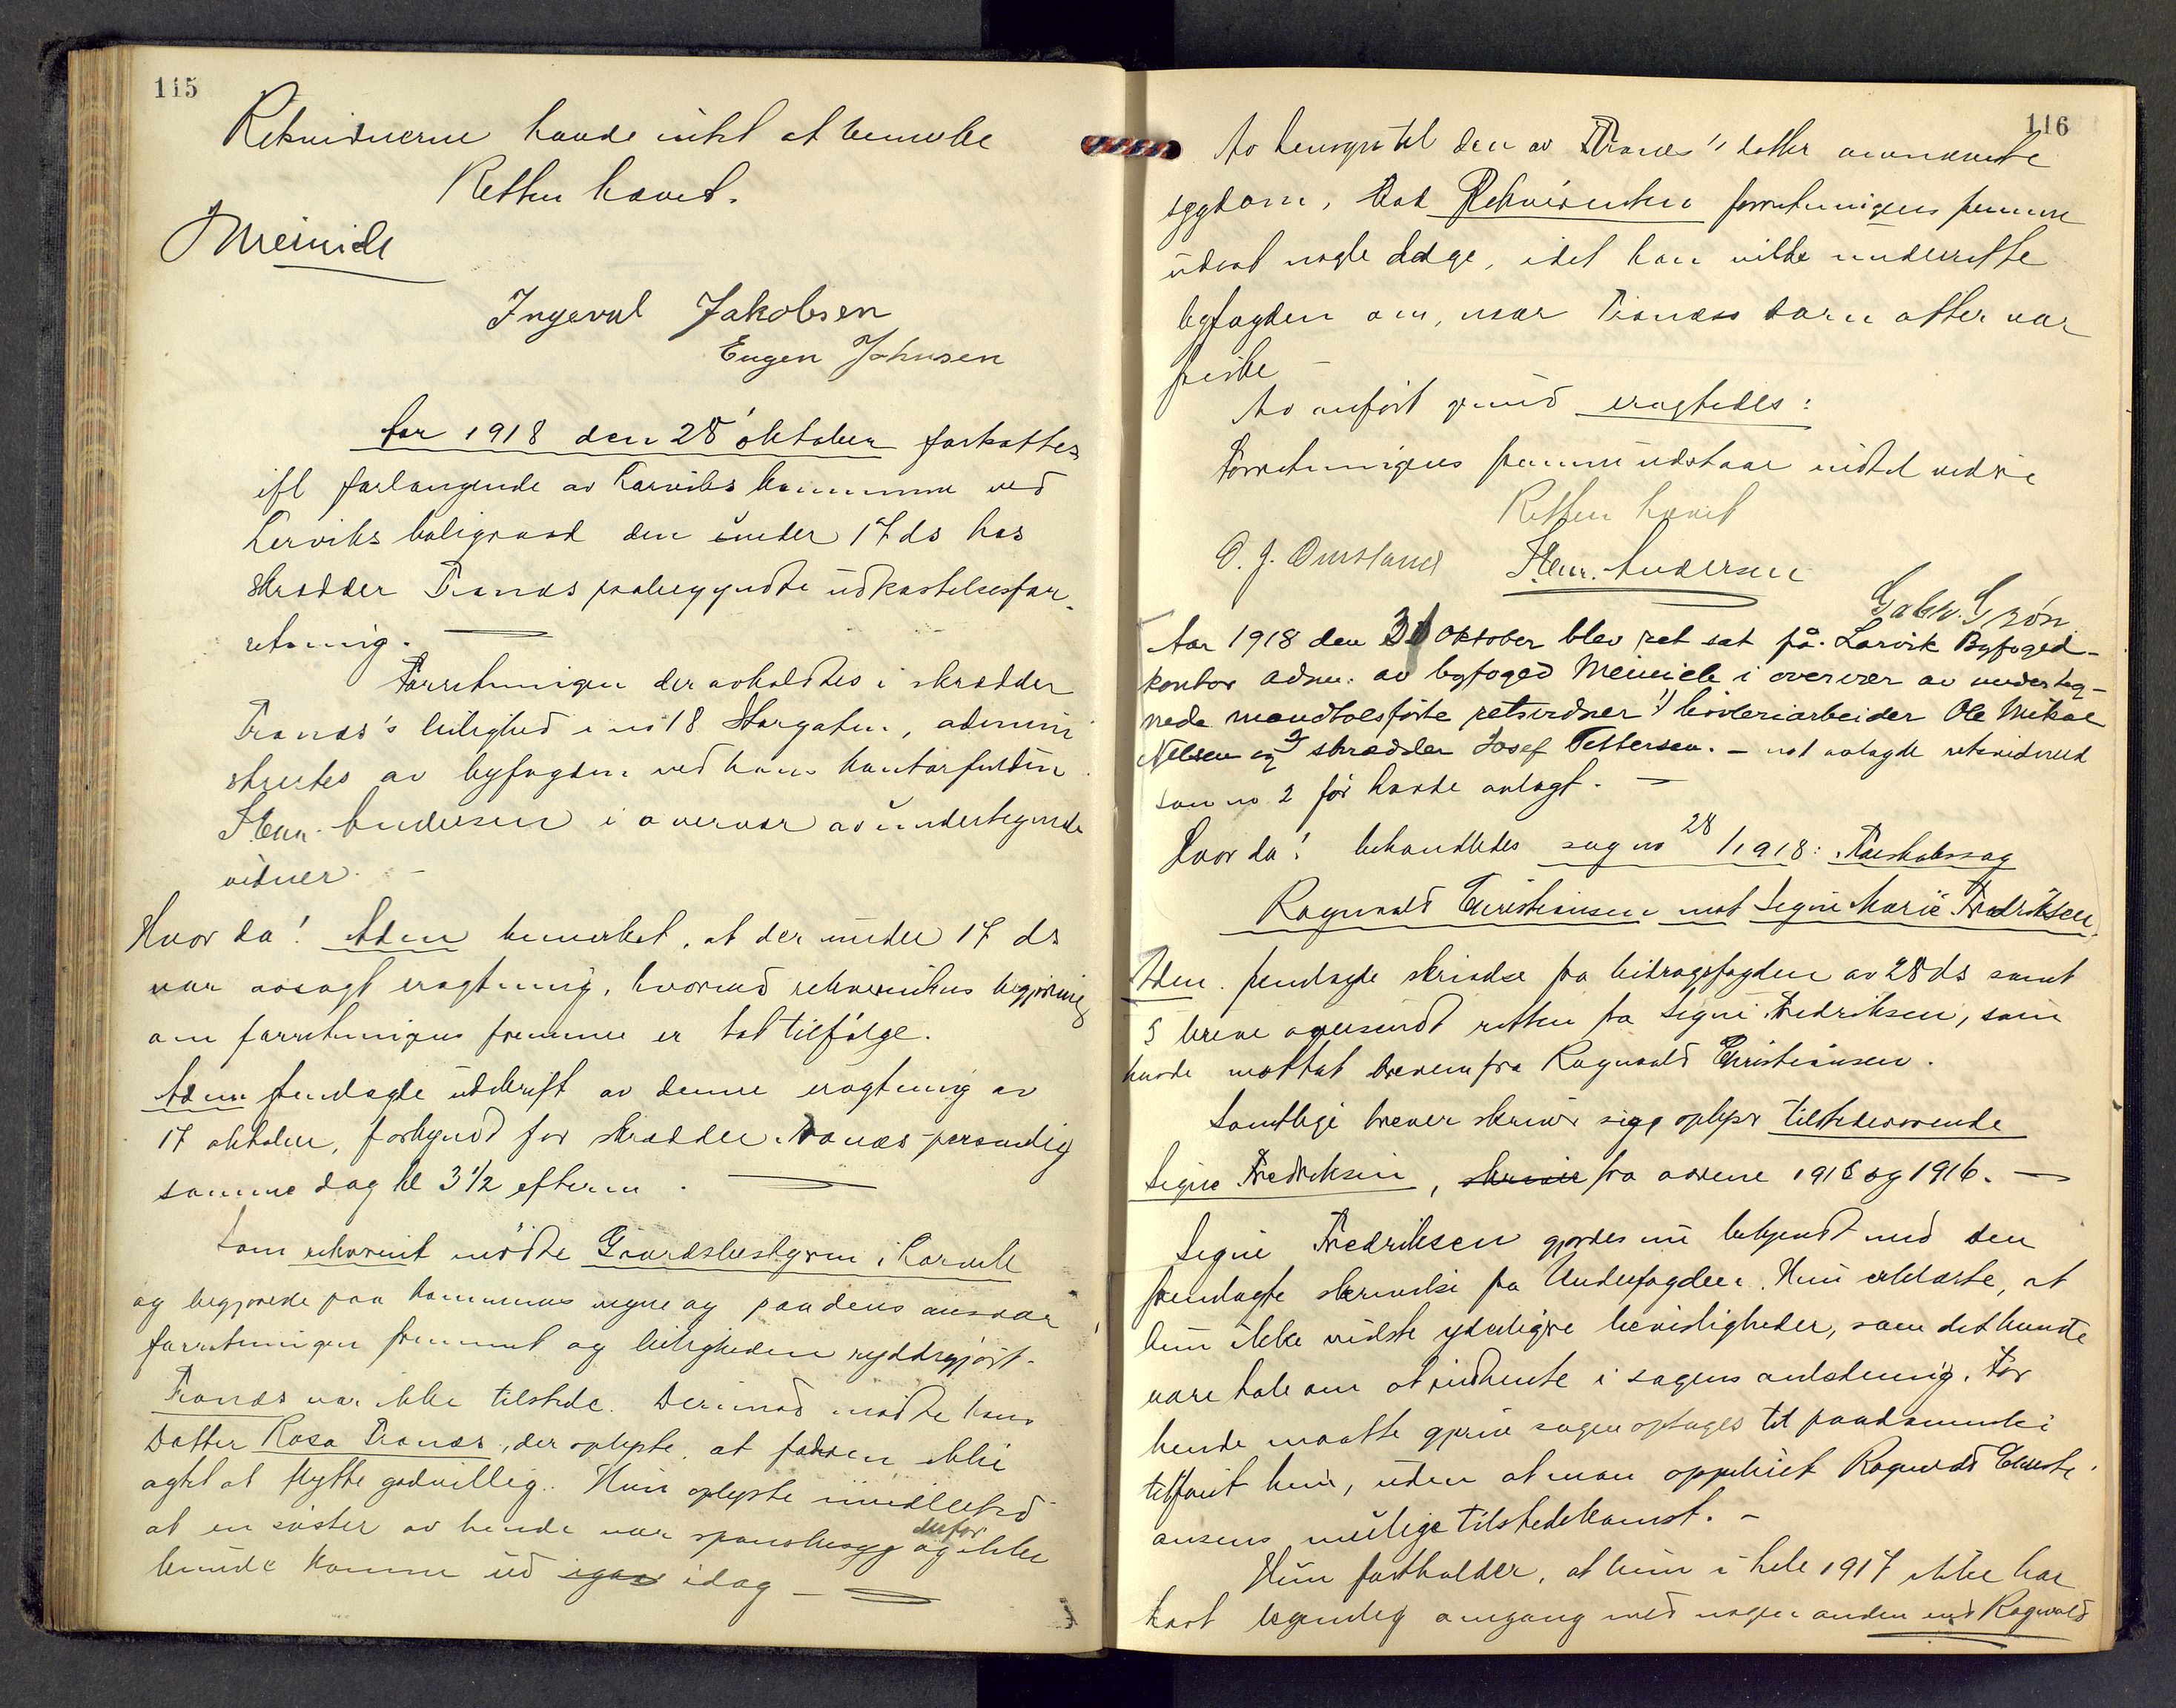 115
Retsvidnerne havde intet at bemerke
Retten hævet.
Meinich
Ingeval Jakobsen
Eugen Johnsen
Aar 1918 den 28 oktober fortsattes
ifl forlangende av Larviks kommune ved
Larviks boligraad den under 17 ds hos
skrædder Tranæs paabegyndte utkastelsesfor-
retning.
Forretningen der avholdtes i skrædder
Tranæs's leilighed i no 18 Storgaten, admini
strertes av byfogden ved hans kontorfuldm
Henr. Andersen i overvær av undertegnede
vidner. —
Hvor da! Adm bemerket, at der under 17 ds
var avsagt eragtning, hvorved rekvirentens begjæring
om forretningens fremme er tat tilfølge.
Adm fremlagde utskrift av denne eragtning av
17 oktober, forkyndt for skrædder Tranæs personlig
samme dag kl 3 1/2 efterm. —
Som rekvirent mødte Gaardsbestyreren i Larvik
og begjærede paa kommunens vegne og paa dens ansvar
forretningen fremmet og leiligheden ryddiggjort.
Tranæs var ikke tilstede. Derimod mødte hans
Datter Rosa Tranæs, der oplyste, at faderen ikke
agtet at flytte godvillig. Hun oplyste imidlertid
at en søster av hende var spansksyg og derfor ikke
kunde komme ud igaar idag —
116
Av hensyn til den av Tranæs's datter omnævnte
sygdom, bad Rekvirenten forretningens fremme
udsat nogle dage, idet han vilde underrette
byfogden om, naar Tranæss barn atter var
friske —
Av anført grund eragtedes:
Forretningens fremme udstaar indtil videre
Retten hævet
O. J. Omsland Henr. Andersen
Gabr. Grøn
Aar 1918 den 31 Oktober blev ret sat på Larvik Byfoged-
kontor adm. av byfoged Meinich i overvær av underteg-
nede mandtalsførte retsvidner 1) høvleriarbeider Ole Mikal
Nilsen og 2) skrædder Josef Pettersen. — no 1 avlagde retsvidneed
som no 2 før havde avlagt. —
Hvor da! behandledes sag no 28/1918: Farskabssag
Ragnvald Christiansen mot Signe Marie Fredriksen.
Adm. fremlagde skrivelse fra bidragsfogden av 28 ds samt
5 breve oversendt retten fra Signe Fredriksen, som
havde mottat brevene fra Ragnvald Christiansen.
Samtlige breve skriver sig, oplyser tilstedeværende
Signe Fredriksen, skriver fra aarene 1915 og 1916. —
Signe Fredriksen gjordes nu bekjendt med den
fremlagte skrivelse fra Underfogden. Hun erklærte, at
hun ikke vidste yderligere bevisligheder, som det kunde
være tale om at indhente i sagens anledning. For
hende maatte gjerne sagen optages til paadømmelse
tilføiet hun, uden at man oppebiet Ragnvald Christi-
ansens mulige tilstedekomst. —
Hun fastholder, at hun i hele 1917 ikke har
havt legemlig omgang med nogen anden end Ragnvald